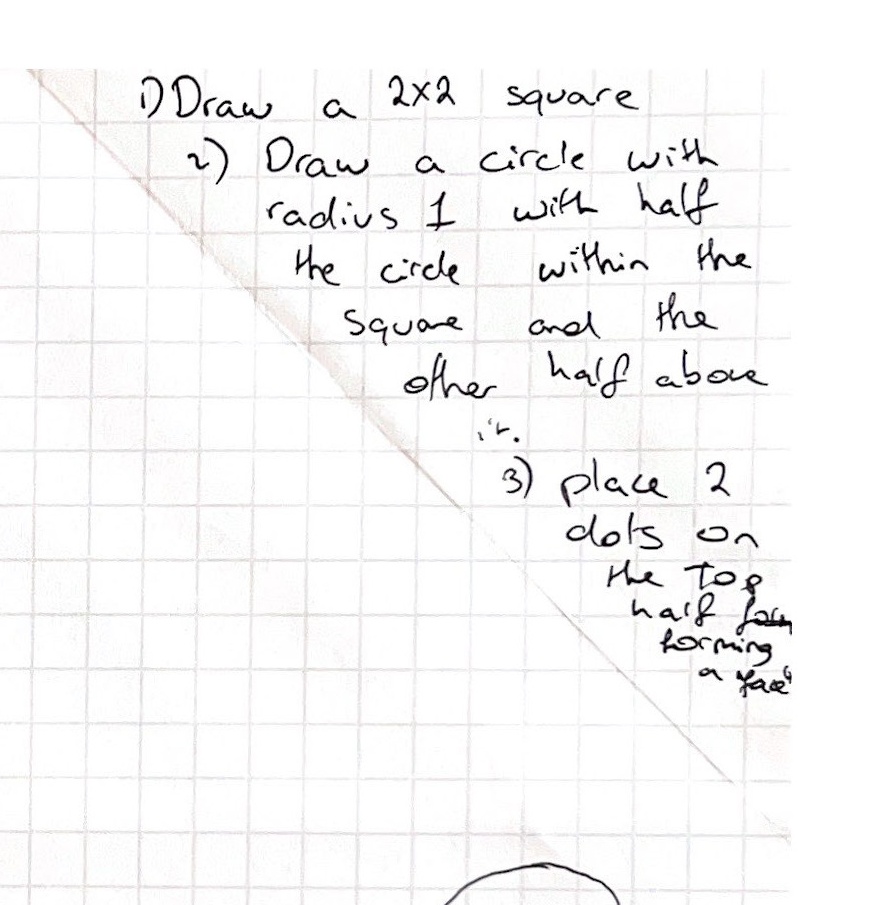 1) Draw a 2x2 square
2) Draw a circle with
radius 1 with half
the circle within the
square and the
other half above
it.
3) place 2
dots on
the Top
half
forming
a face